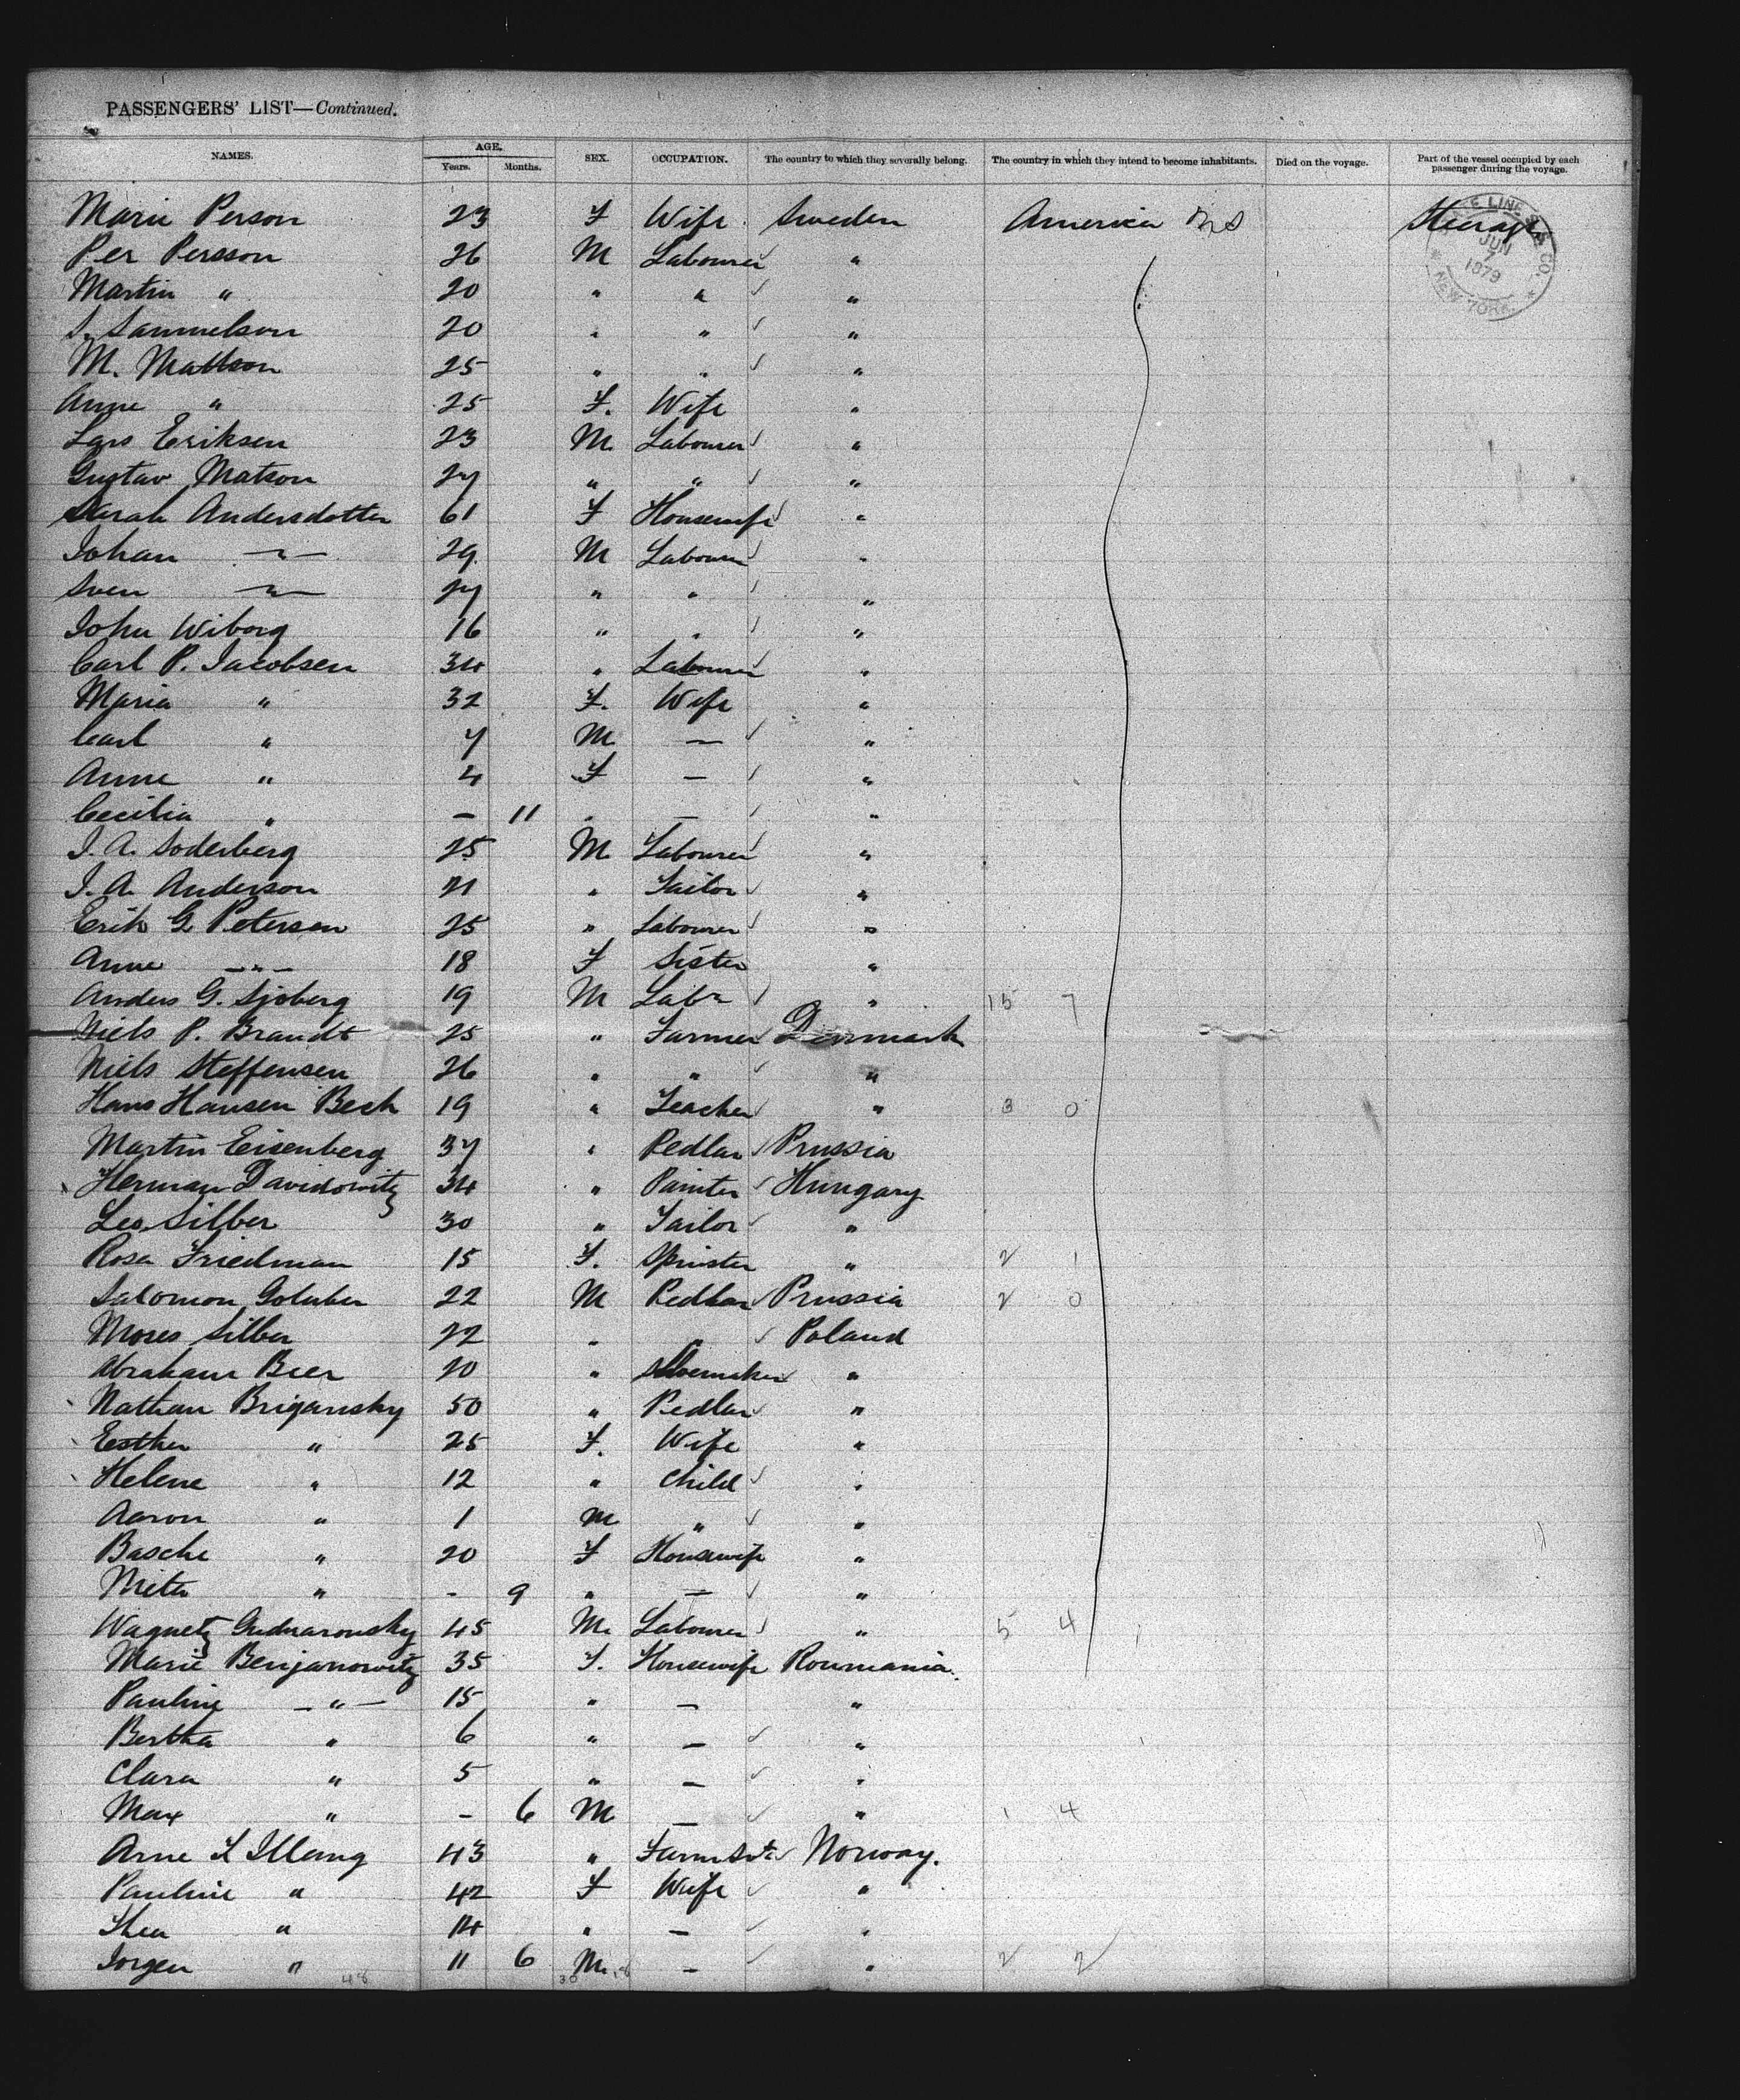 PASSENGERS' LIST—Continued.
NAMES. AGE. Years. Months. SEX. OCCUPATION. The country to which they severally belong. The country in which they intend to become inhabitants. Died on the voyage. Part of the vessel occupied by each passenger during the voyage.
Marie Person 23 F Wife Sweden America Steerage
LINE S.S. CO. JUN 7 1879 NEW YORK
Per Persson 26 M Labourer "
Martin " 20 " " "
S. Sammelson 20 " " "
M. Mattson 25 " " "
Anne " 25 F. Wife "
Lars Eriksen 23 M. Labourer "
Gustav Matson 27 " " "
Sarah Andersdotter 61 F Housewife "
Johan —"— 29 M Labourer "
Sven —"— 27 " " "
John Wiborg 16 " " "
Carl P. Jacobsen 34 " Labourer "
Maria " 32 F. Wife "
Carl " 7 M — "
Anne " 4 F — "
Cecilia " — 11 " — "
J. A. Soderberg 25 M Labourer "
J. A. Anderson 21 " Tailor "
Erik G Peterson 25 " Labourer "
Anne —"— 18 F Sister "
Anders G. Sjoberg 19 M Labr " 15 7
Niels P. Brandt 25 " Farmer Denmark
Niels Steffensen 26 " " "
Hans Hansen Bech 19 " Teacher " 3 0
Martin Eisenberg 37 " Pedlar Prussia
Herman Davidowitz 34 " Painter Hungary
Leo Silber 30 " Tailor "
Rosa Friedman 15 F. Spinster " 2 1
Salomon Goluber 22 M Pedlar Prussia 2 0
Moses Silber 22 " " Poland
Abraham Beer 20 " Shoemaker "
Nathan Brigansky 50 " Pedlar "
Esther " 25 F. Wife "
Helene " 12 " Child "
Aaron " 1 M " "
Basche " 20 F Housewife "
Meta " - 9 " — "
45 M. Labourer " 5 4
Marie Benjanowitz 35 F. Housewife Roumania.
Pauline —"— 15 " — "
Bertha " 6 " — "
Clara " 5 " — "
Max " - 6 M — " 1 4
Arne 43 " Norway.
Pauline " 42 F Wife "
Thea " 14 " — "
Jorgen " 11 6 M. — " 2 2
48 30 18